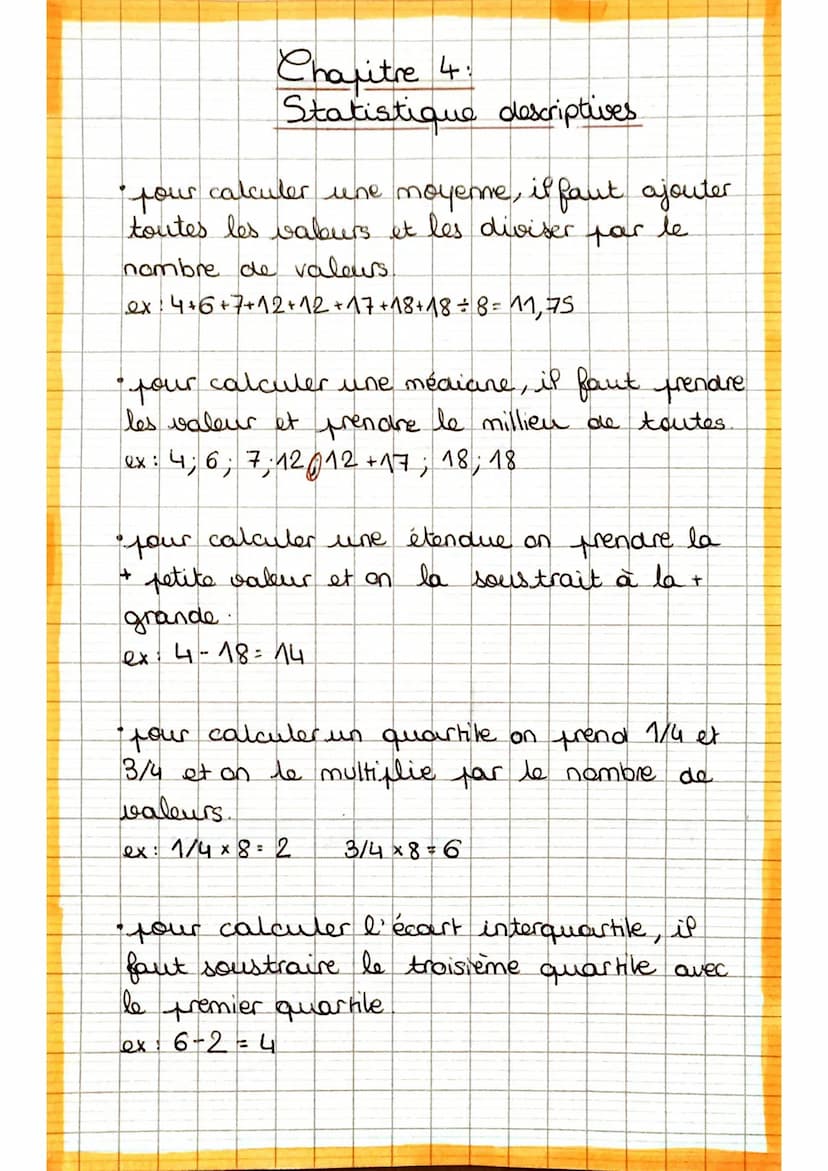 Chapitre 4:
Statistique descriptives
• pour calculer une moyenne, il faut ajouter
toutes les valeurs et les diviser par le
nombre de valeurs.
ex : 4+6+7+12+12+17+18+18÷8= 11,75
• pour calculer une médiane, il faut prendre
les valeur et prendre le millieu de toutes.
ex : 4; 6; 7;12;12+17; 18; 18
• pour calculer une étendue on prendre la
+ petite valeur et on la soustrait à la +
grande.
ex : 4-18= 14
• pour calculer un quartile on prend 1/4 et
3/4 et on le multiplie par le nombre de
valeurs.
ex : 1/4 × 8 = 2 3/4 × 8 = 6
• pour calculer l'écart interquartile, il
faut soustraire le troisième quartile avec
le premier quartile.
ex : 6-2 = 4